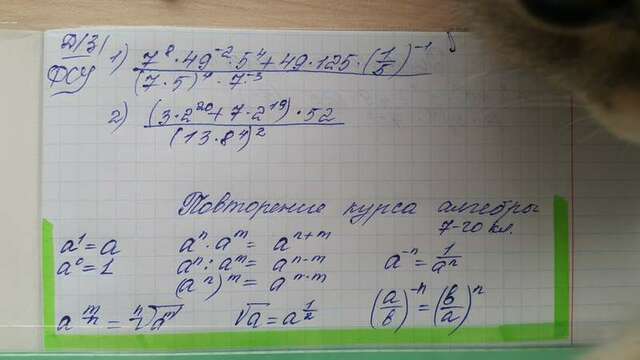 Д/З 1) \frac{7^8 \cdot 49^{-2} \cdot 5^4 + 49 \cdot 125 \cdot (\frac{1}{5})^{-1}}{(7 \cdot 5)^4 \cdot 7^{-3}}
ФСУ
2) \frac{(3 \cdot 2^{20} + 7 \cdot 2^{19}) \cdot 52}{(13 \cdot 8^4)^2}
Повторение курса алгебры
7-го кл.
a^1 = a a^n \cdot a^m = a^{n+m} a^{-n} = \frac{1}{a^n}
a^0 = 1 a^n : a^m = a^{n-m}
(a^n)^m = a^{n \cdot m} (\frac{a}{b})^{-n} = (\frac{b}{a})^n
a^{\frac{m}{n}} = \sqrt[n]{a^m} \sqrt{a} = a^{\frac{1}{2}}